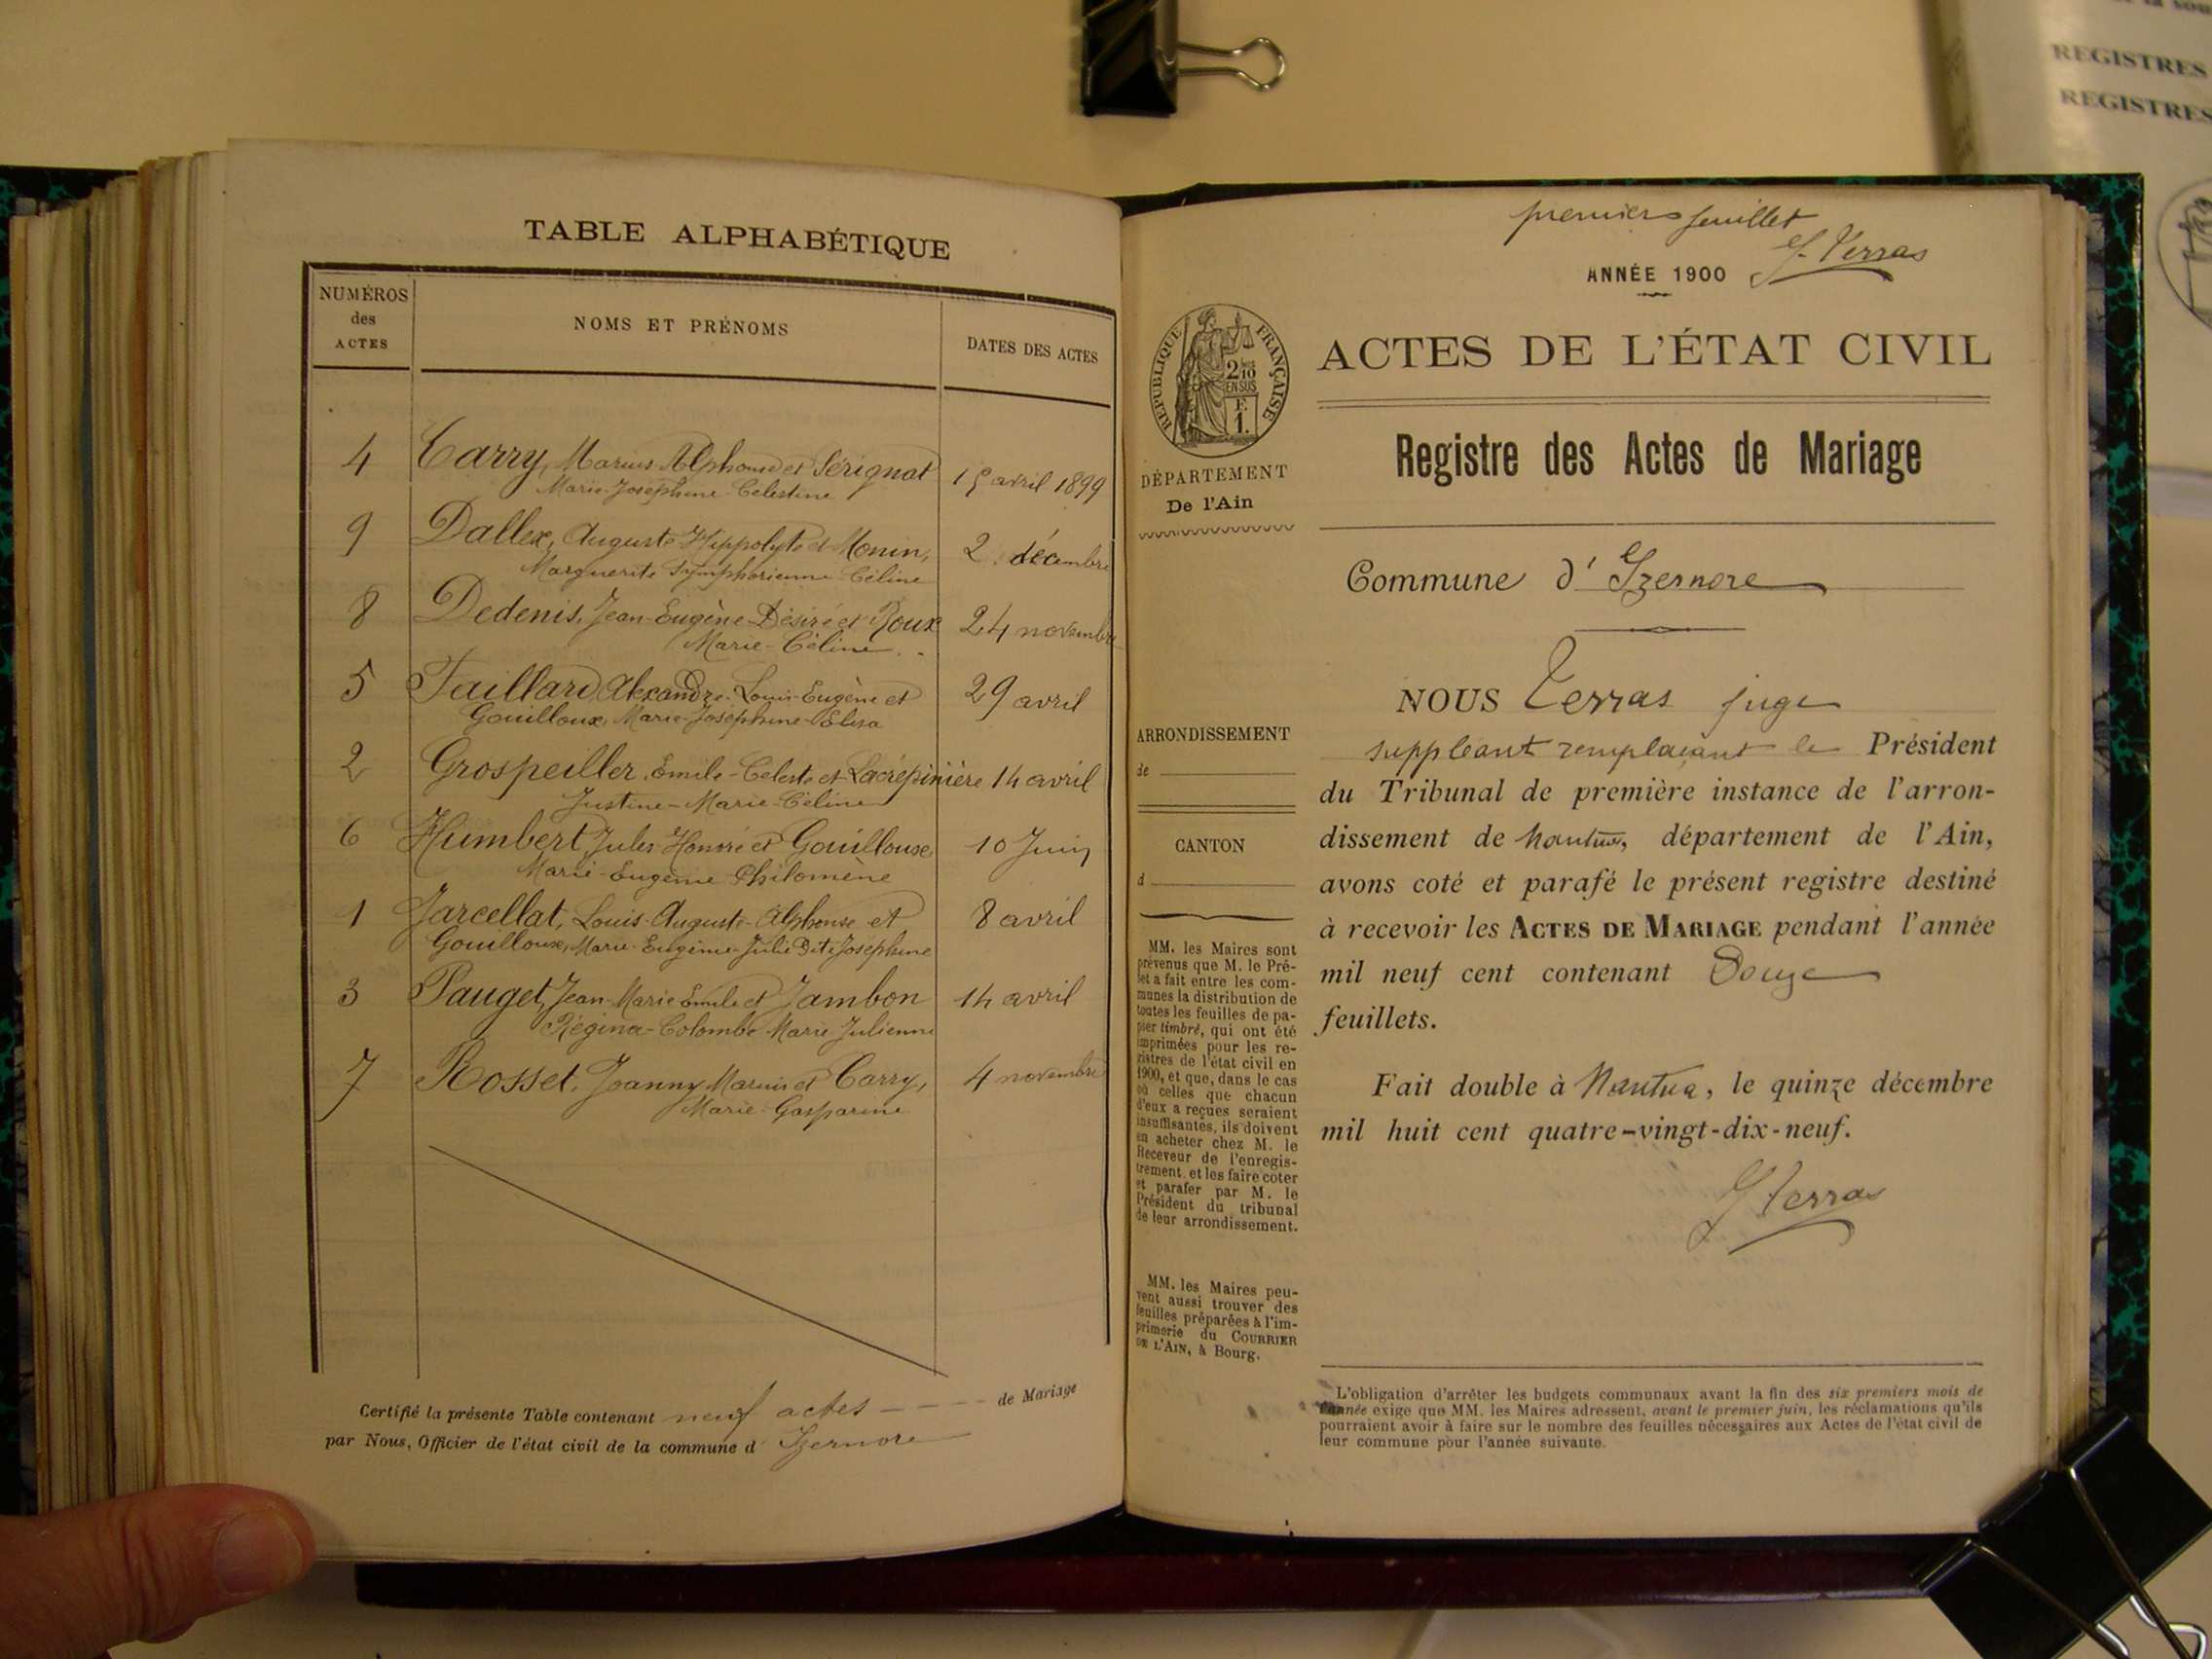 TABLE ALPHABÉTIQUE
NUMÉROS
des
ACTES
NOMS ET PRÉNOMS
DATES DES ACTES
4 Carry, Marius Alphonse et Sérignat 15 avril 1899
Marie-Josephine Célestine
9 Dallex, Auguste Hippolyte et Monin, 2 décembre
Marguerite Symphorienne Céline
8 Dedenis, Jean-Eugène Désiré et Roux 24 novembre
Marie-Céline
5 Faillard Alexandre-Louis-Eugène et 29 avril
Gouilloux, Marie-Joséphine-Elisa
2 Grospeiller, Emile-Celeste et Lacrépinière 14 avril
Justine-Marie-Céline
6 Humbert, Jules Honoré et Gouilloux 10 Juin
Marie-Eugénie Philomène
1 Jarcellat, Louis-Auguste-Alphonse et 8 avril
Gouilloux, Marie-Eugénie-Julie Dite Joséphine
3 Pauget, Jean-Marie Emile et Jambon 14 avril
Régina-Colombe Marie Julienne
7 Rosset, Joanny Marius et Carry, 4 novembre
Marie Gasparine
Certifié la présente Table contenant neuf actes de Mariage
par Nous, Officier de l'état civil de la commune d' Izernore
premier feuillet
J. Terras
ANNÉE 1900
RÉPUBLIQUE FRANÇAISE
2/10
EN SUS
F.
1.
ACTES DE L'ÉTAT CIVIL
DÉPARTEMENT
De l'Ain
Registre des Actes de Mariage
Commune d' Izernore
ARRONDISSEMENT
de
CANTON
d
MM. les Maires sont
prévenus que M. le Pré-
fet a fait entre les com-
munes la distribution de
toutes les feuilles de pa-
pier timbré, qui ont été
imprimées pour les re-
gistres de l'état civil en
1900, et que, dans le cas
où celles que chacun
d'eux a reçues seraient
insuffisantes, ils doivent
en acheter chez M. le
Receveur de l'enregis-
trement, et les faire coter
et parafer par M. le
Président du tribunal
de leur arrondissement.
MM. les Maires peu-
vent aussi trouver des
feuilles préparées à l'im-
primerie du COURRIER
DE L'AIN, à Bourg.
NOUS Terras juge
suppléant remplaçant le Président
du Tribunal de première instance de l'arron-
dissement de Nantua, département de l'Ain,
avons coté et parafé le présent registre destiné
à recevoir les ACTES DE MARIAGE pendant l'année
mil neuf cent contenant Douze
feuillets.
Fait double à Nantua, le quinze décembre
mil huit cent quatre-vingt-dix-neuf.
J Terras
L'obligation d'arrêter les budgets communaux avant la fin des six premiers mois de
l'année exige que MM. les Maires adressent, avant le premier juin, les réclamations qu'ils
pourraient avoir à faire sur le nombre des feuilles nécessaires aux Actes de l'état civil de
leur commune pour l'année suivante.
REGISTRES
REGISTRES